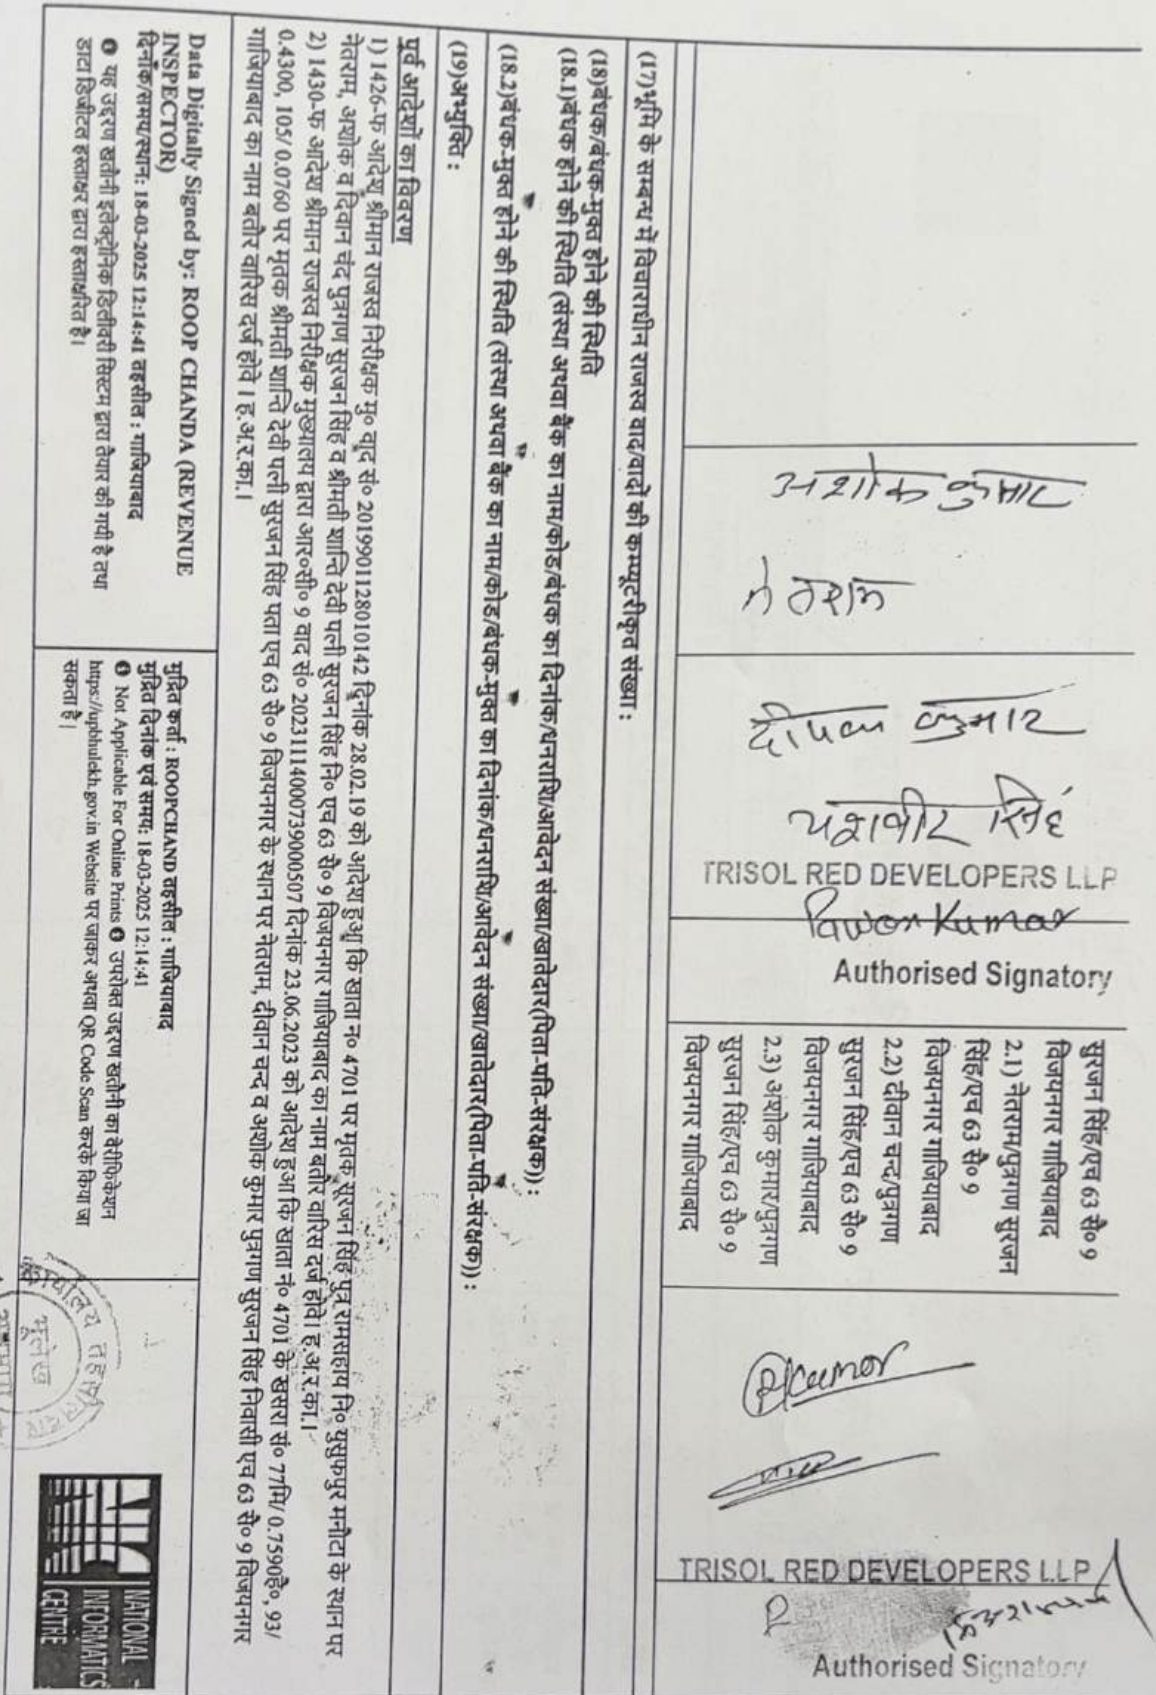 सुरजन सिंह/एच 63 सै० 9
विजयनगर गाजियाबाद
2.1) नेतराम/पुत्रगण सुरजन
सिंह/एच 63 सै० 9
विजयनगर गाजियाबाद
2.2) दीवान चन्द/पुत्रगण
सुरजन सिंह/एच 63 सै० 9
विजयनगर गाजियाबाद
2.3) अशोक कुमार/पुत्रगण
सुरजन सिंह/एच 63 सै० 9
विजयनगर गाजियाबाद
अशोक कुमार
नेतराम
दीपक कुमार
यशवीर सिंह
TRISOL RED DEVELOPERS LLP
Pawan Kumar
Authorised Signatory
PKumar
TRISOL RED DEVELOPERS LLP
Authorised Signatory
(17)भूमि के सम्बन्ध में विचाराधीन राजस्व वाद/वादों की कम्प्यूटरीकृत संख्या :
(18)बंधक/बंधक-मुक्त होने की स्थिति
(18.1)बंधक होने की स्थिति (संस्था अथवा बैंक का नाम/कोड/बंधक का दिनांक/धनराशि/आवेदन संख्या/खातेदार(पिता-पति-संरक्षक)) :
(18.2)बंधक-मुक्त होने की स्थिति (संस्था अथवा बैंक का नाम/कोड/बंधक-मुक्त का दिनांक/धनराशि/आवेदन संख्या/खातेदार(पिता-पति-संरक्षक)) :
(19)अभ्युक्ति :
पूर्व आदेशों का विवरण
1) 1426-फ आदेश श्रीमान राजस्व निरीक्षक मु० वाद सं० 201990112801014​2 दिनांक 28.02.19 को आदेश हुआ कि खाता न० 4701 पर मृतक सुरजन सिंह पुत्र रामसहाय नि० युसुफपुर मनोटा के स्थान पर
नेतराम, अशोक व दिवान चंद पुत्रगण सुरजन सिंह व श्रीमती शान्ति देवी पत्नी सुरजन सिंह नि० एच 63 सै० 9 विजयनगर गाजियाबाद का नाम बतौर वारिस दर्ज होवे। ह.अ.र.का.।
2) 1430-फ आदेश श्रीमान राजस्व निरीक्षक मुख्यालय द्वारा आर०सी० 9 वाद सं० 202311140007390​00507 दिनांक 23.06.2023 को आदेश हुआ कि खाता नं० 4701 के खसरा सं० 77मि/ 0.7590है०, 93/
0.4300, 105/ 0.0760 पर मृतक श्रीमती शान्ति देवी पत्नी सुरजन सिंह पता एच 63 सै० 9 विजयनगर के स्थान पर नेतराम, दीवान चन्द व अशोक कुमार पुत्रगण सुरजन सिंह निवासी एच 63 सै० 9 विजयनगर
गाजियाबाद का नाम बतौर वारिस दर्ज होवे । ह.अ.र.का.।
Data Digitally Signed by: ROOP CHANDA (REVENUE
INSPECTOR)
दिनाँक/समय/स्थान: 18-03-2025 12:14:41 तहसील : गाजियाबाद
यह उद्दरण खतौनी इलेक्ट्रोनिक डिलीवरी सिस्टम द्वारा तैयार की गयी है तथा
डाटा डिजीटल हस्ताक्षर द्वारा हस्ताक्षरित है।
मुद्रित कर्ता : ROOPCHAND तहसील : गाजियाबाद
मुद्रित दिनांक एवं समय: 18-03-2025 12:14:41
Not Applicable For Online Prints उपरोक्त उद्दरण खतौनी का वेरीफिकेशन
https://upbhulekh.gov.in Website पर जाकर अथवा QR Code Scan करके किया जा
सकता है।
कार्यालय तहसीलदार
भूलेख
NATIONAL
INFORMATICS
CENTRE